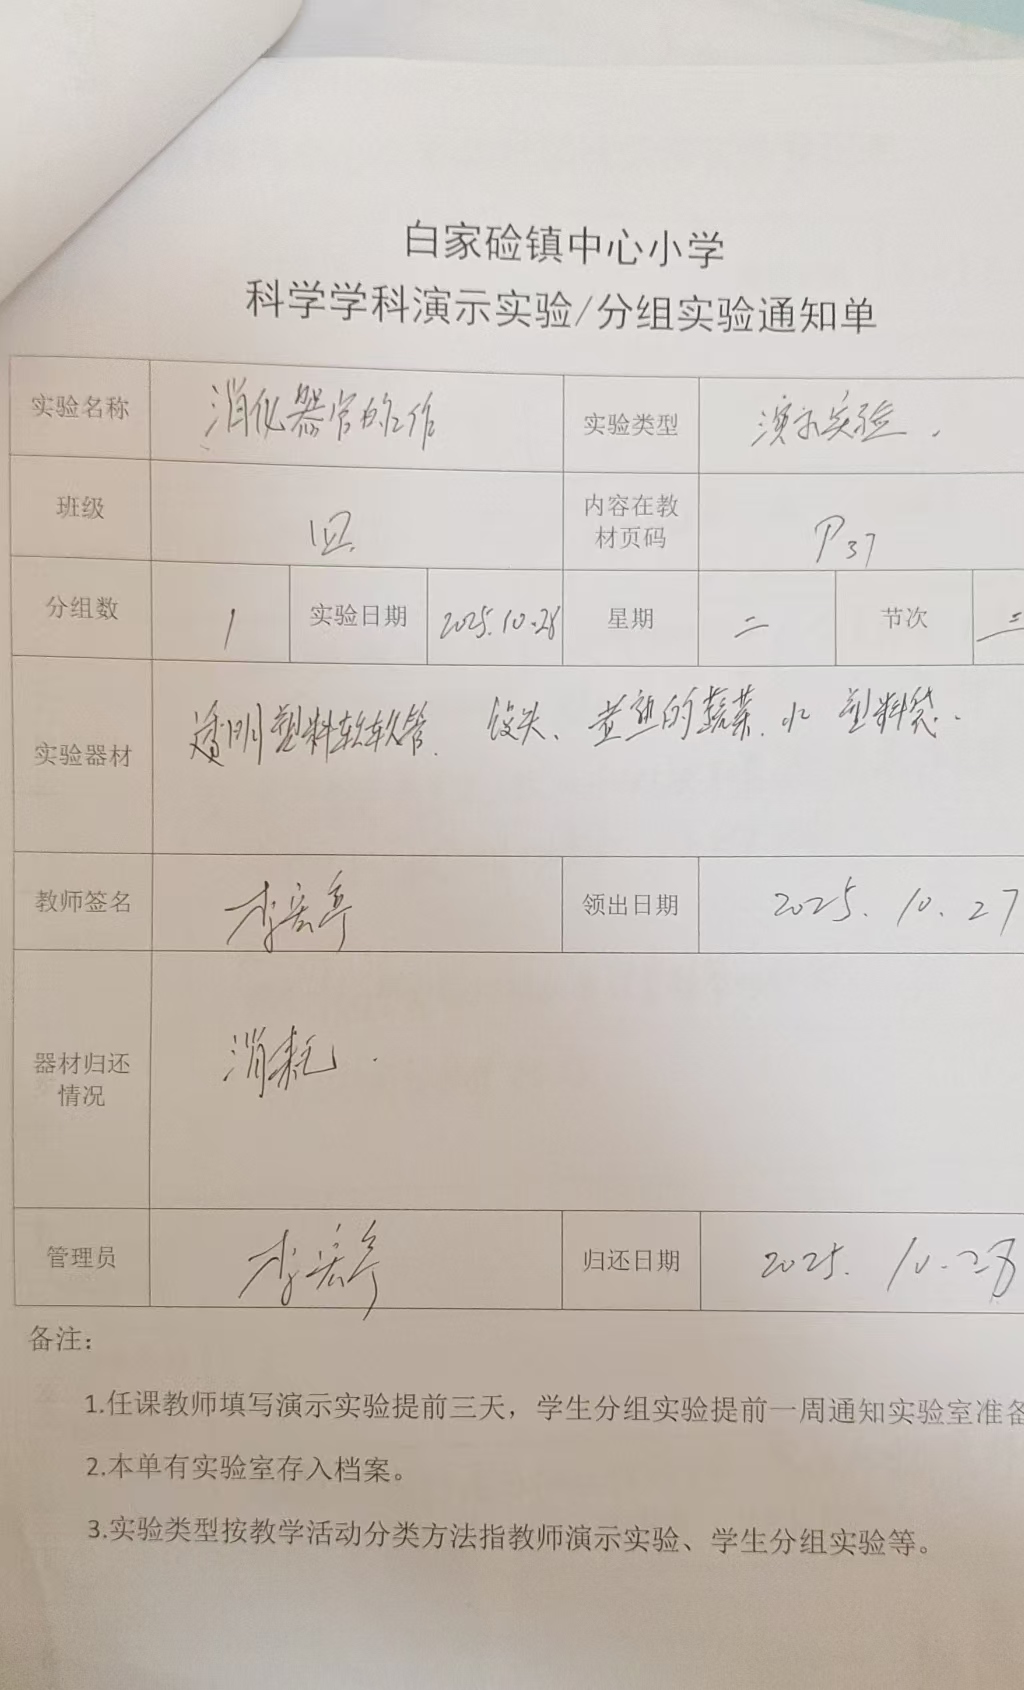 白家硷镇中心小学
科学学科演示实验/分组实验通知单
实验名称 消化器官的工作 实验类型 演示实验.
班级 四. 内容在教材页码 P37
分组数 1 实验日期 2025.10.28 星期 二 节次 三
实验器材 透明塑料软软管、馒头、煮熟的蔬菜、水 塑料袋.
教师签名 李宏亭 领出日期 2025.10.27
器材归还情况 消耗.
管理员 李宏亭 归还日期 2025.10.28
备注：
1.任课教师填写演示实验提前三天，学生分组实验提前一周通知实验室准备
2.本单有实验室存入档案。
3.实验类型按教学活动分类方法指教师演示实验、学生分组实验等。